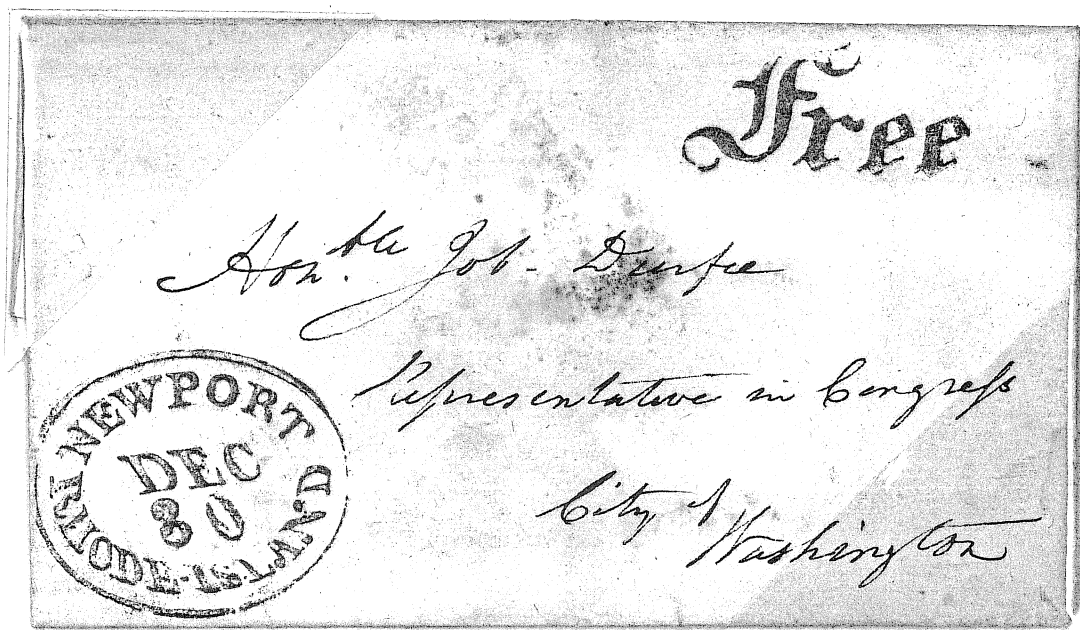 Free
Hon.ble Job Durfee
Representative in Congress
City of
Washington
NEWPORT
DEC
30
RHODE-ISLAND